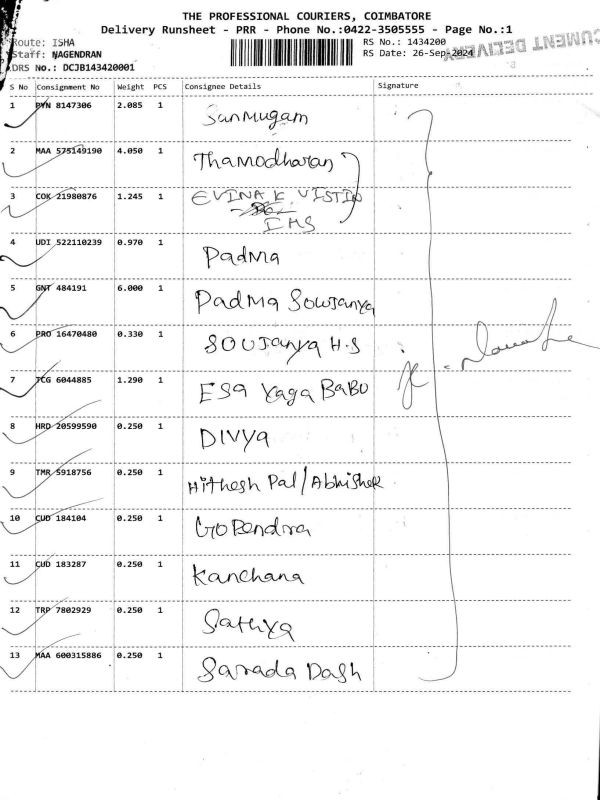 THE PROFESSIONAL COURIERS, COIMBATORE
Delivery Runsheet - PRR - Phone No.:0422-3505555 - Page No.:1
Route: ISHA
RS No.: 1434200
Staff: NAGENDRAN
RS Date: 26-Sep-2024
DOCUMENT DELIVERY
DRS No.: DCJB143420001
S No Consignment No Weight PCS Consignee Details Signature
1 PYN 8147306 2.085 1 Sunmugam
2 MAA 575149190 4.050 1 Thamodharan
3 COK 21980876 1.245 1 EVINA K VISTIN
IHS
4 UDI 522110239 0.970 1 Padma
5 GNT 484191 6.000 1 Padma Soujanya
6 PRO 16470480 0.330 1 SOUJanya H.S
7 TCG 6044885 1.290 1 Esa Yaga BaBU
8 HRD 20599590 0.250 1 DIVya
9 TMR 5918756 0.250 1 Hithesh Pal/Abhishek
10 CUD 184104 0.250 1 GoPendra
11 CUD 183287 0.250 1 Kanchana
12 TRP 7802929 0.250 1 Sathya
13 MAA 600315886 0.250 1 Sarada Dash